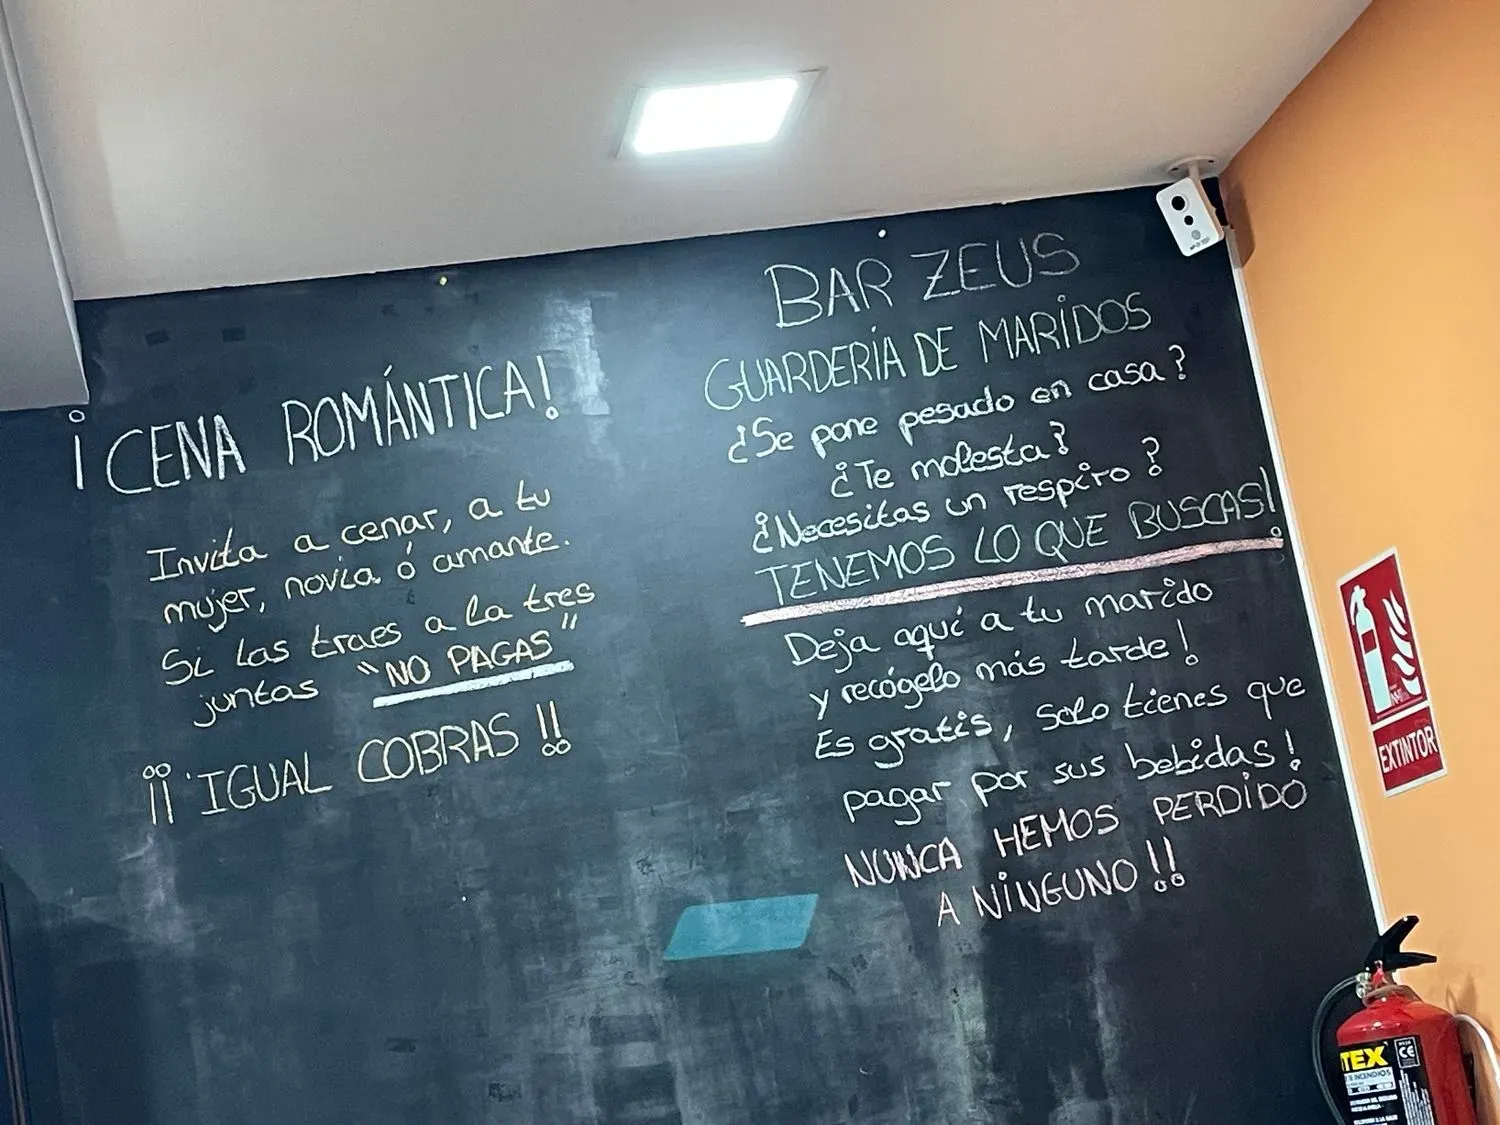 ¡CENA ROMÁNTICA!
Invita a cenar, a tu
mujer, novia ó amante.
Si las traes a la tres
juntas "NO PAGAS"
¡¡IGUAL COBRAS!!
BAR ZEUS
GUARDERÍA DE MARIDOS
¿Se pone pesado en casa?
¿Te molesta?
¿Necesitas un respiro?
TENEMOS LO QUE BUSCAS!
Deja aquí a tu marido
y recógelo más tarde!
Es gratis, solo tienes que
pagar por sus bebidas!
NUNCA HEMOS PERDIDO
A NINGUNO!!
EXTINTOR
TEX
CE